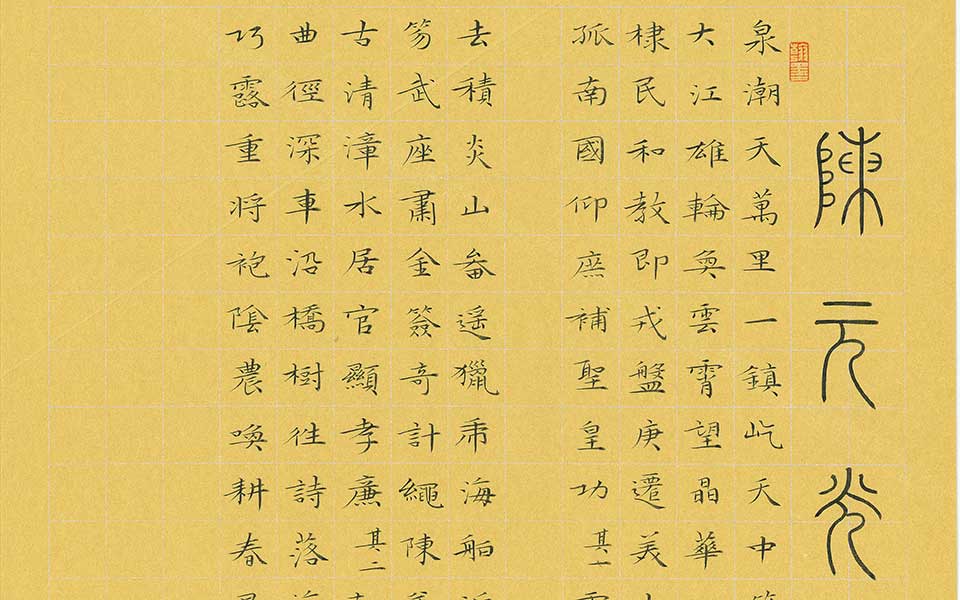 陳元光
泉潮天萬里一鎮屹天中
大江雄輪奐雲霄望晶華
棣民和教即戎盤庚遷美
孤南國仰庶補聖皇功其一
去積炎山畚遙獵市海舶
笏武座肅金簽奇計繩陳
古清漳水居官顯孝廉其二
曲徑深車沿橋樹往詩落
巧露重將袍陰農喚耕春